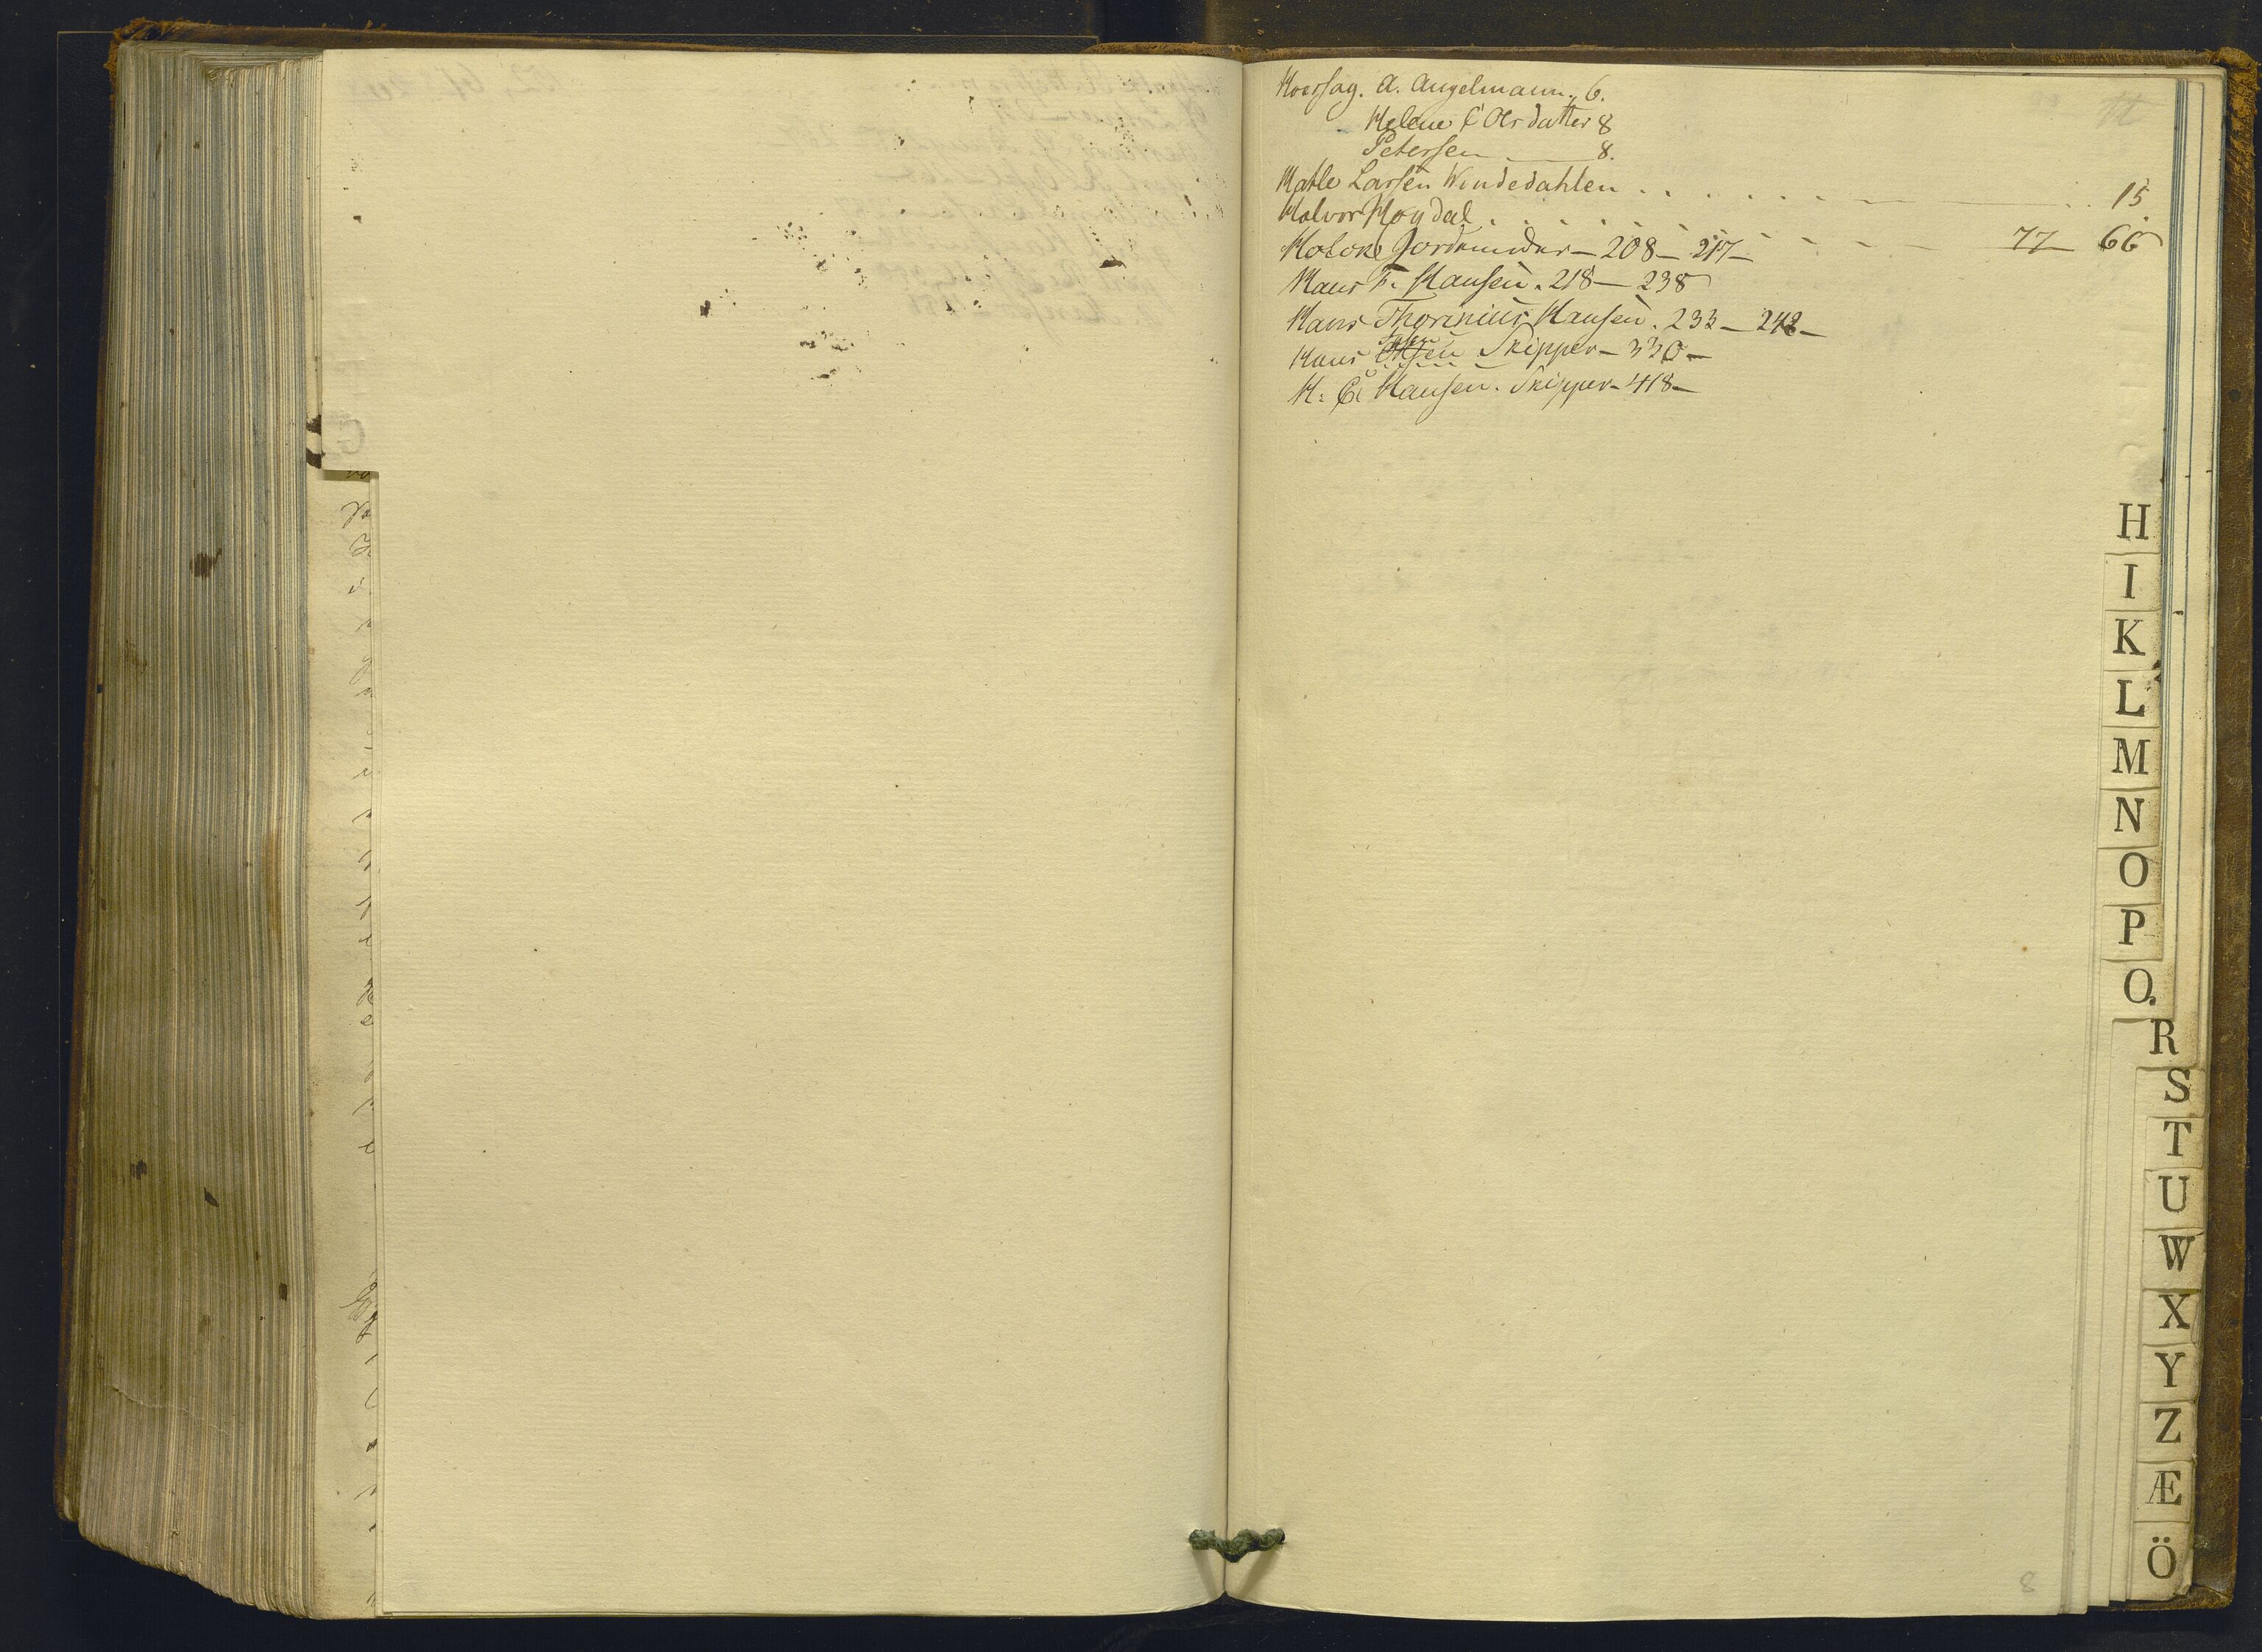 Hoersag. A. Angelmann. 6.
Helene C Olsdatter 8
Petersen . — 8.
Hatle Larsen Windedahlen . . . . . . . — . . 15.
Halvor Høydal . . . . . . . . . — 77 — 66
Jordemoder — 208 — 217 —
Hans F. Hansen . 218 — 238
Hans Thorinius Hansen . 233 — 248 —
Hans Skipper — 330 —
H: C: Hansen . Skipper — 418 —
H
I
K
L
M
N
O
P
Q
R
S
T
U
W
X
Y
Z
Æ
Ö
8